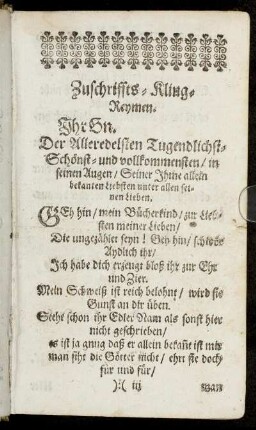 Zuschriffts-Kling-
Reymen.
Ihr Gn.
Der Alleredelsten Tugendlichst-
Schönst- und vollkommensten / in
seinen Augen / Seiner Ihme allein
bekanten Liebsten unter allen sei-
nen Lieben.
GEh hin / mein Bücherkind / zur Lieb-
sten meiner Lieben /
Die ungezähler seyn! Geh hin /
Aydlich ihr /
Ich habe dich erzeugt bloß ihr zur Ehr
und Zier.
Mein Schweiß ist reich belohnt / wird sie
Gunst an dir üben.
Stehe schon ihr Edler Nam als sonst hier
nicht geschrieben /
es ist ja gnug daß er allein bekañt ist mir
man siht die Götter nicht / ehrt sie doch
für und für /
):( iij
Man